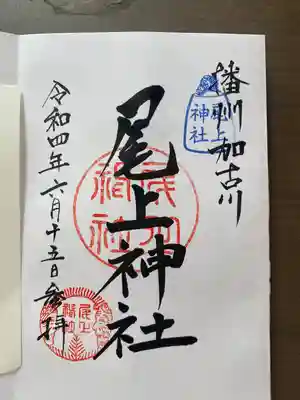 播州加古川
尾上
神社
尾上神社
令和四年六月十五日参拝
尾上
神社